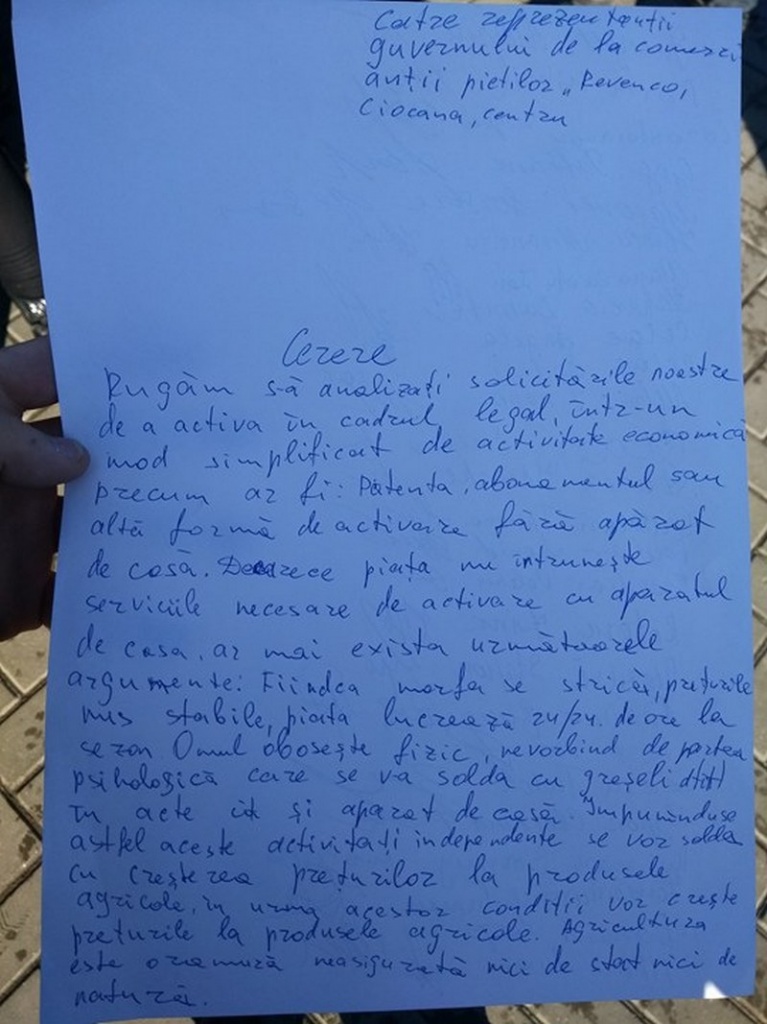 Catre reprezentanții
guvernului de la comerci
anții pieților „Revenco,
Ciocana, centru
Cerere
Rugăm s-ă analizați solicitările noastre
de a activa în cadrul legal, într-un
mod simplificat de activitate economică
precum ar fi: Patenta, abonamentul sau
altă formă de activare fără aparat
de casă. Deoarece piața nu întrunește
serviciile necesare de activare cu aparatul
de casa, ar mai exista următoarele
argumente: Fiindca marfa se strică, prețurile
nus stabile, piața lucrează 24/24 de ore la
sezon Omul obosește fizic, nevorbind de partea
psihologică care se va solda cu greșeli atît
în acte cît și aparat de casă. Impunînduse
astfel aceste activități independente se vor solda
cu creșterea prețurilor la produsele
agricole, în urma acestor condiții vor crește
prețurile la produsele agricole. Agricultura
este o ramură neasigurată nici de stat nici de
natură.